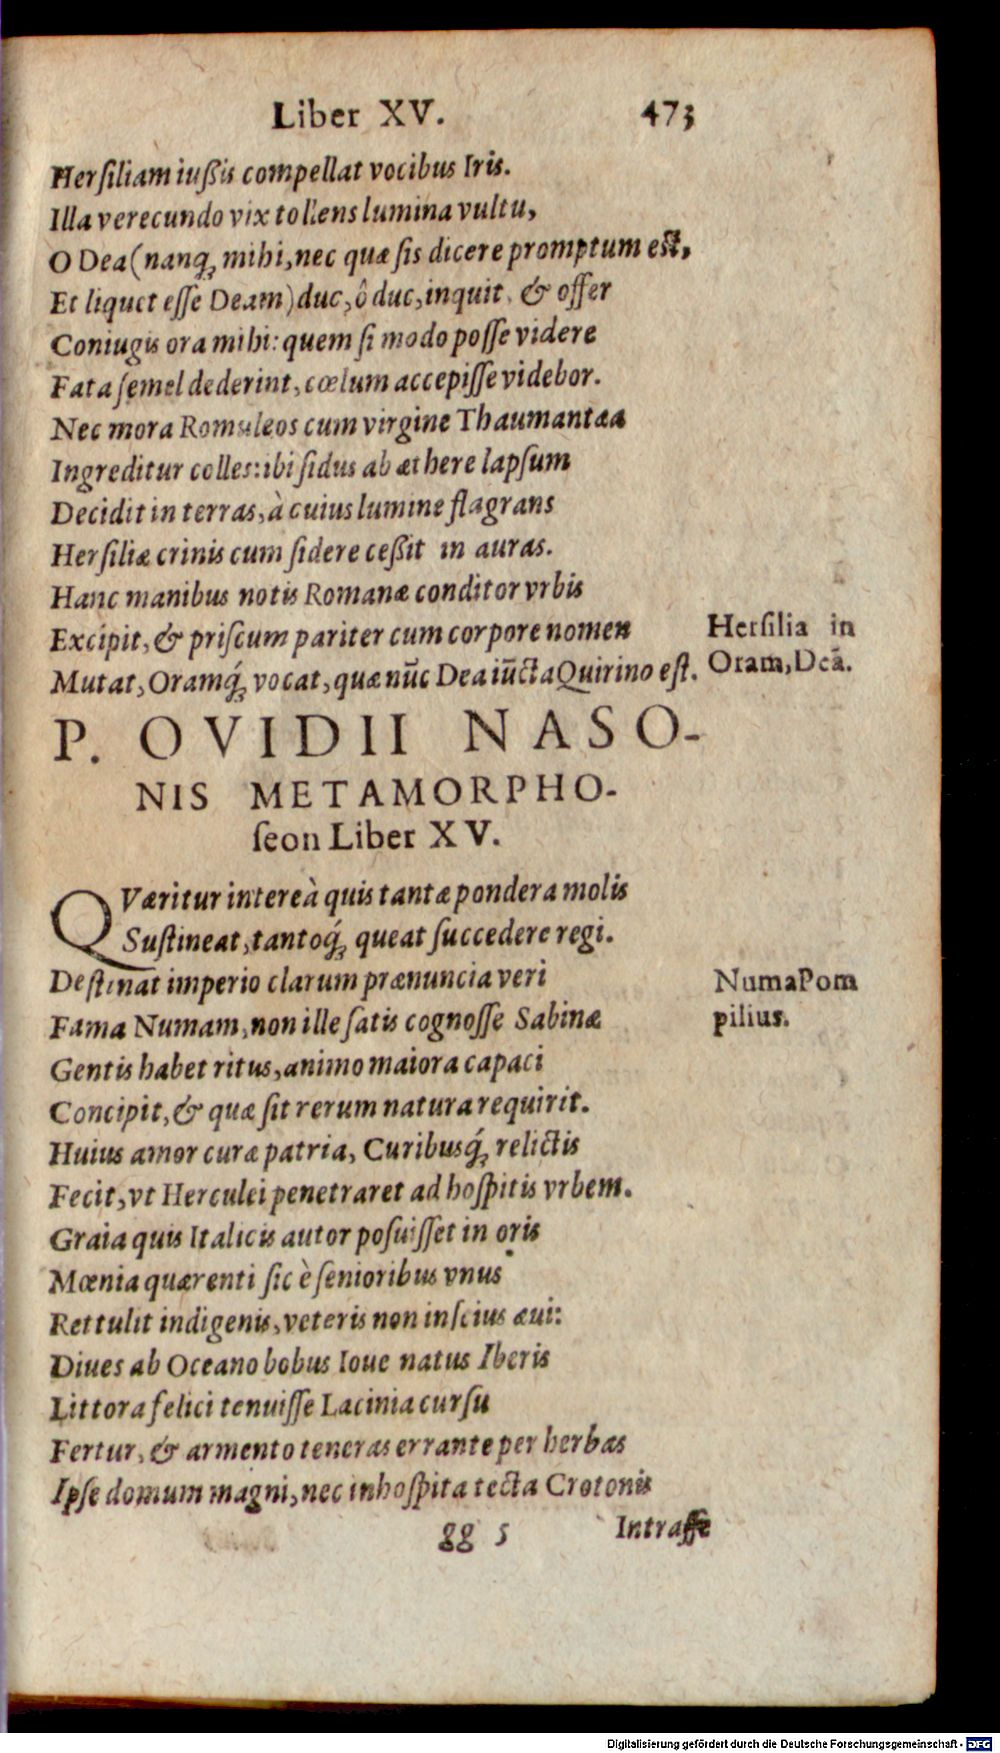 Liber XV. 473
Herſiliam iußis compellat vocibus Iris.
Illa verecundo vix tollens lumina vultu,
O Dea (nanq́; mihi, nec quæ ſis dicere promptum est,
Et liquet eſſe Deam) duc, ô duc, inquit, & offer
Coniugis ora mihi: quem ſi modo poſſe videre
Fata ſemel dederint, cœlum accepiſſe videbor.
Nec mora Romuleos cum virgine Thaumantæa
Ingreditur colles: ibi ſidus ab æthere lapſum
Decidit in terras, à cuius lumine flagrans
Herſiliæ crinis cum ſidere ceßit in auras.
Hanc manibus notis Romanæ conditor vrbis
Excipit, & priſcum pariter cum corpore nomen
Mutat, Oramq́; vocat, quæ nũc Dea iũcta Quirino eſt.
Herſilia in
Oram, Deã.
P. OVIDII NASO-
NIS METAMORPHO-
ſeon Liber XV.
QVæritur intereà quis tantæ pondera molis
Suſtineat, tantoq́; queat ſuccedere regi.
Deſtinat imperio clarum prænuncia veri
Fama Numam, non ille ſatis cognoſſe Sabinæ
Gentis habet ritus, animo maiora capaci
Concipit, & quæ ſit rerum natura requirit.
Huius amor curæ patria, Curibusq́; relictis
Fecit, vt Herculei penetraret ad hoſpitis vrbem.
Graia quis Italicis autor poſuiſſet in oris
Mœnia quærenti ſic è ſenioribus vnus
Rettulit indigenis, veteris non inſcius æui:
Diues ab Oceano bobus Ioue natus Iberis
Littora felici tenuiſſe Lacinia curſu
Fertur, & armento teneras errante per herbas
Ipſe domum magni, nec inhoſpita tecta Crotonis
NumaPom
pilius.
gg 5 Intraſſe
Digitalisierung gefördert durch die Deutsche Forschungsgemeinschaft - DFG